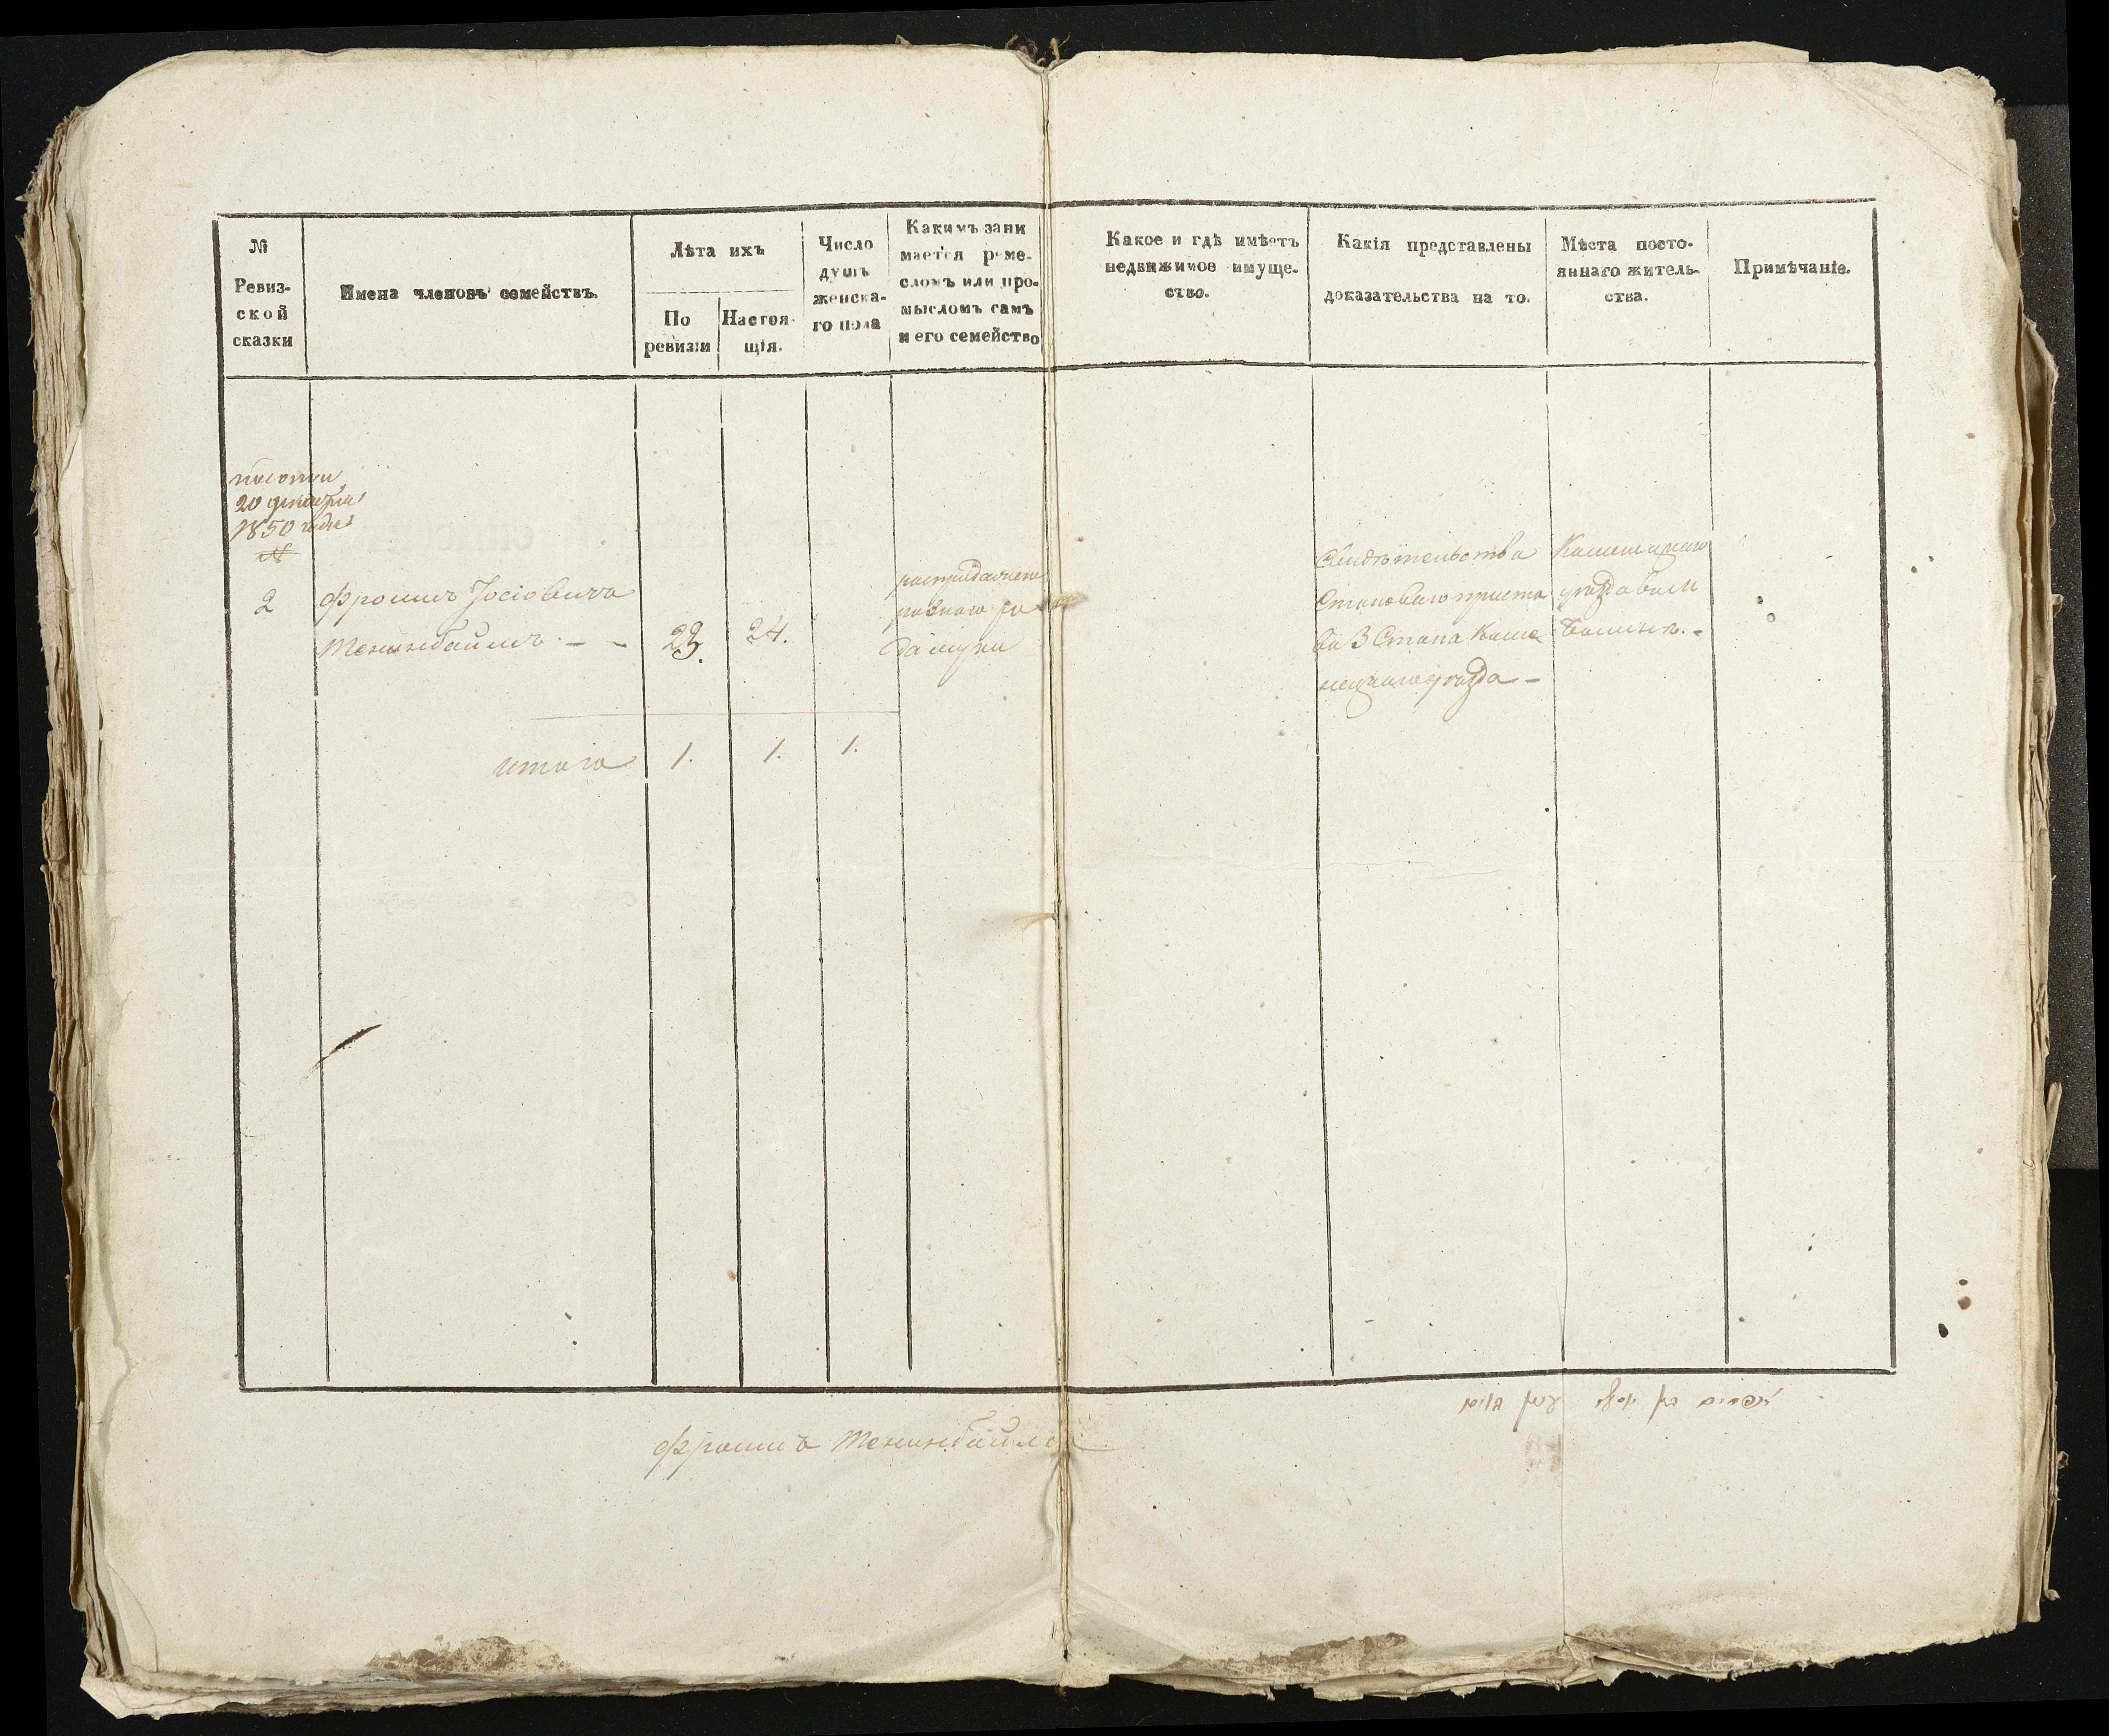 №
Ревиз-
ской
сказки
Имена членовъ семействъ.
Лѣта ихъ
По
ревизіи
Настоя-
щія.
Число
душъ
женска-
го пола
Какимъ зани
мается реме-
сломъ или про-
мысломъ самъ
и его семейство
Какое и гдѣ имѣетъ
недвижимое имуще-
ство.
Какія представлены
доказательства на то.
Мѣста посто-
яннаго житель-
ства.
Примѣчаніе.
20 декабря
1850 года
№
2
Фроимъ Јосіовичъ
Тененбаимъ - -
23.
24.
Свидѣтельства
Становаго приста
ва 3 Стана Каме
нецкаго уѣзда -
уѣзда
итого
1.
1.
1.
Фроимъ Тененбаимъ
אפרים בן יוסף